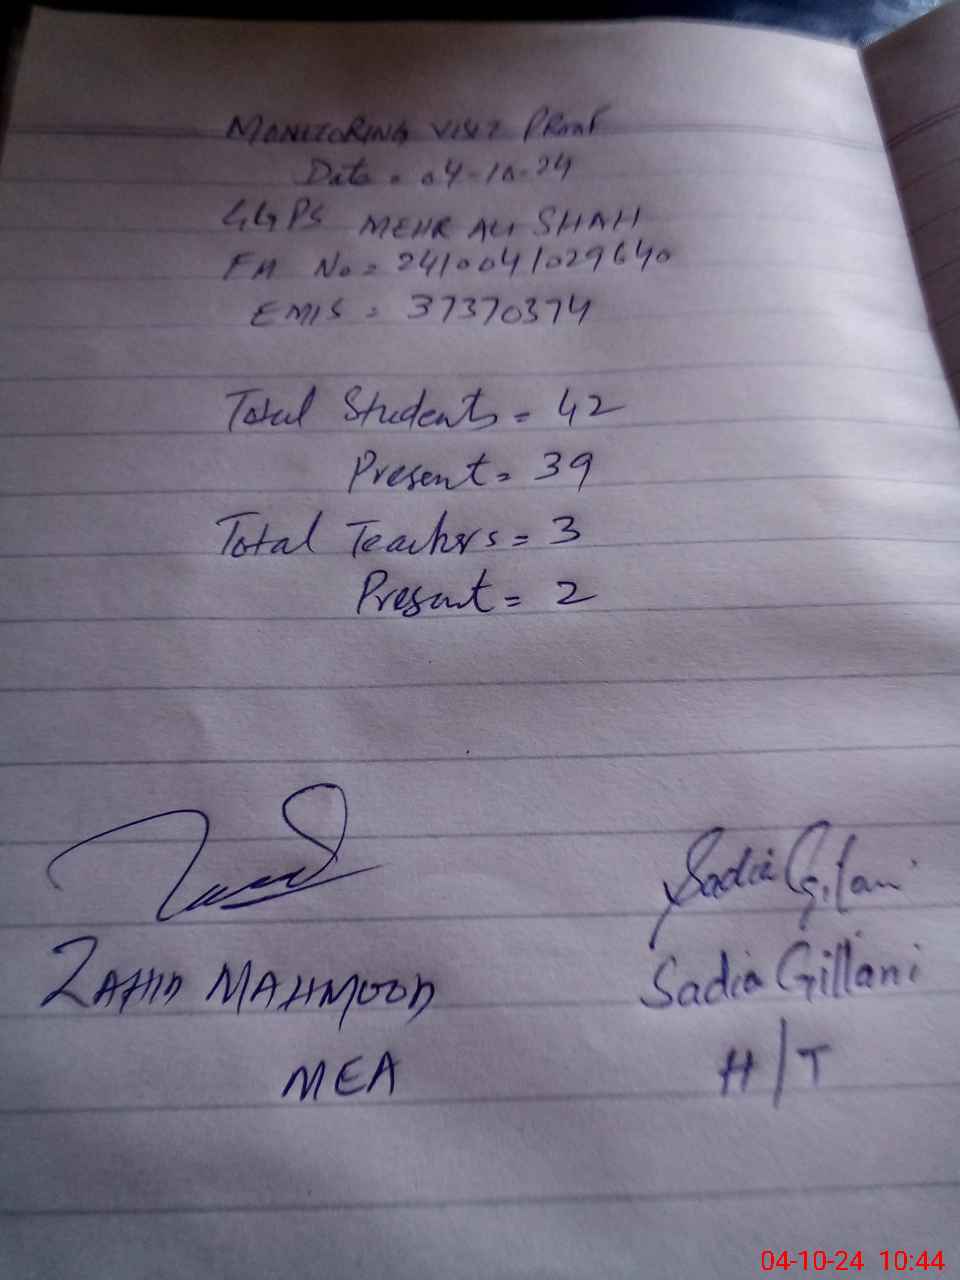 MONITORING VISIT PROOF
Date = 04-10-24
GGPS MEHR ALI SHAH
FM No = 2410041029640
EMIS = 37370374
Total Students = 42
Present = 39
Total Teachers = 3
Present = 2
Sadia Gilani
ZAHID MAHMOOD
Sadia Gillani
MEA
H/T
04-10-24 10:44